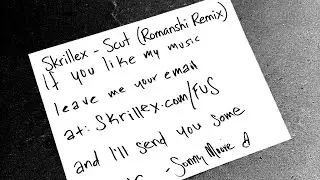 Skrillex - Scut (Romanshi Remix)
If you like my music
leave me your email
at: Skrillex.com/FUS
and I'll send you some
- Sonny Moore